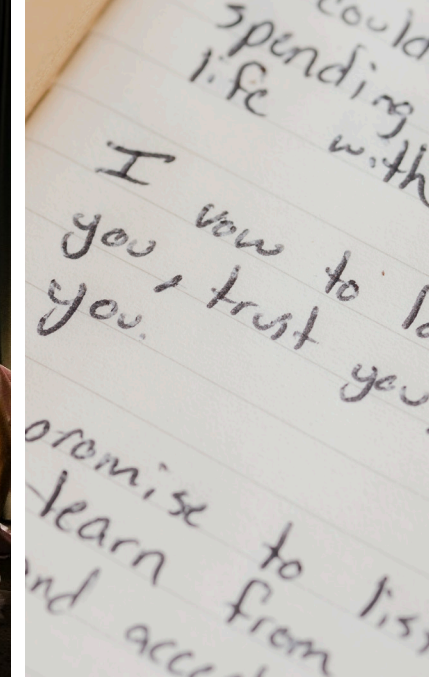 could
spending
life with
I vow to lo
you, trust you,
you.
promise to lis
learn from
and accep